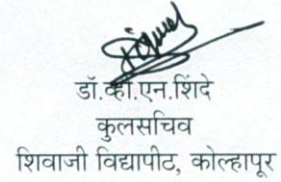 डॉ.व्ही.एन.शिंदे
कुलसचिव
शिवाजी विद्यापीठ, कोल्हापूर